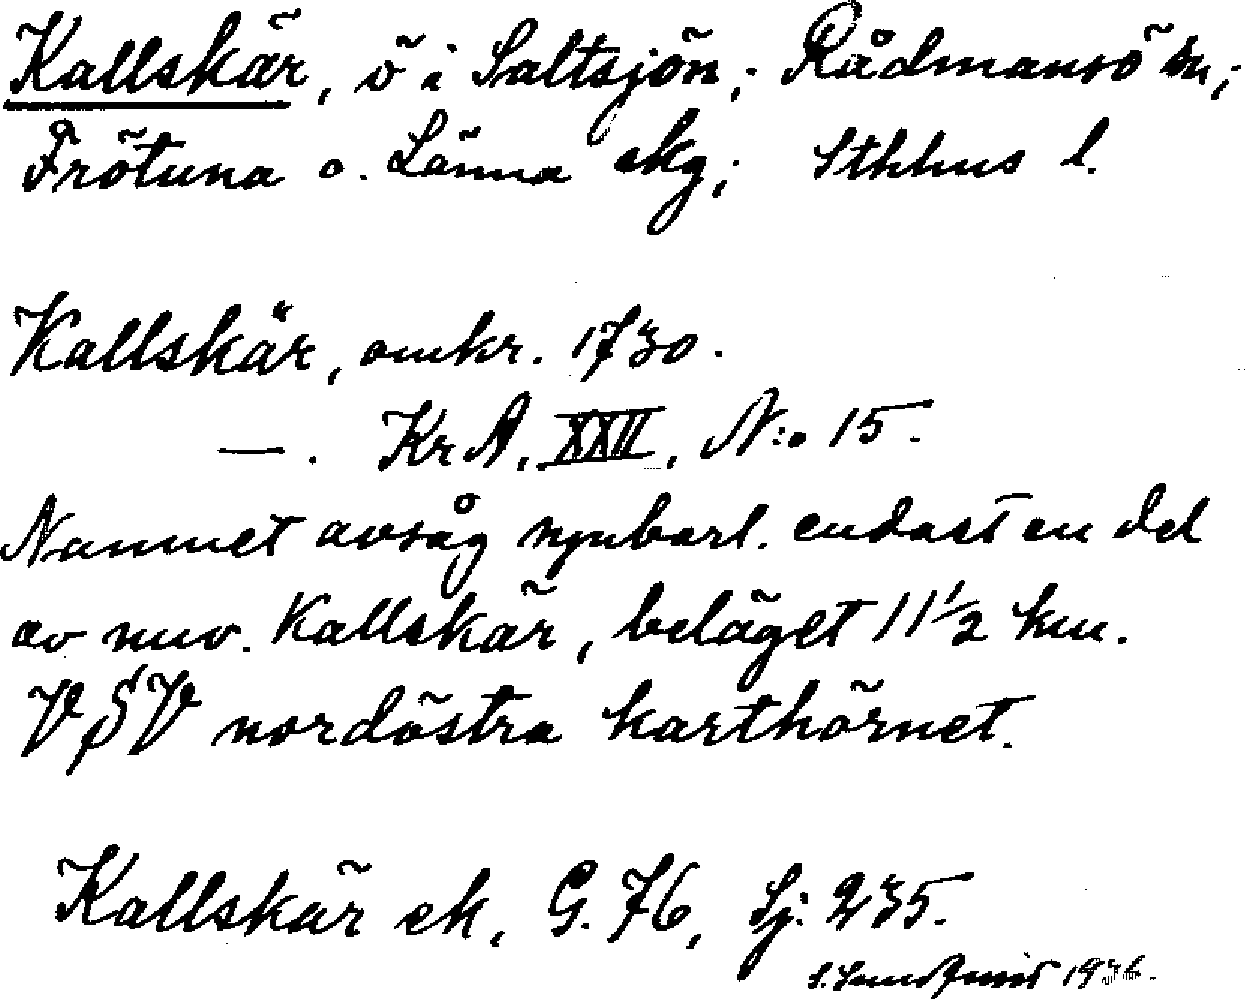 Kallskär, ö i Saltsjön; Rådmansö sn;
Frötuna o. Länna skg; Sthlms l.
Kallskär, omkr. 1730.
—. KrA, XXII, N:o 15.
Namnet avsåg uppenbarl. endast en del
av nuv. Kallskär, beläget 11 1/2 km.
VSV nordöstra karthörnet.
Kallskär ek, G. 76, Sj: 235.